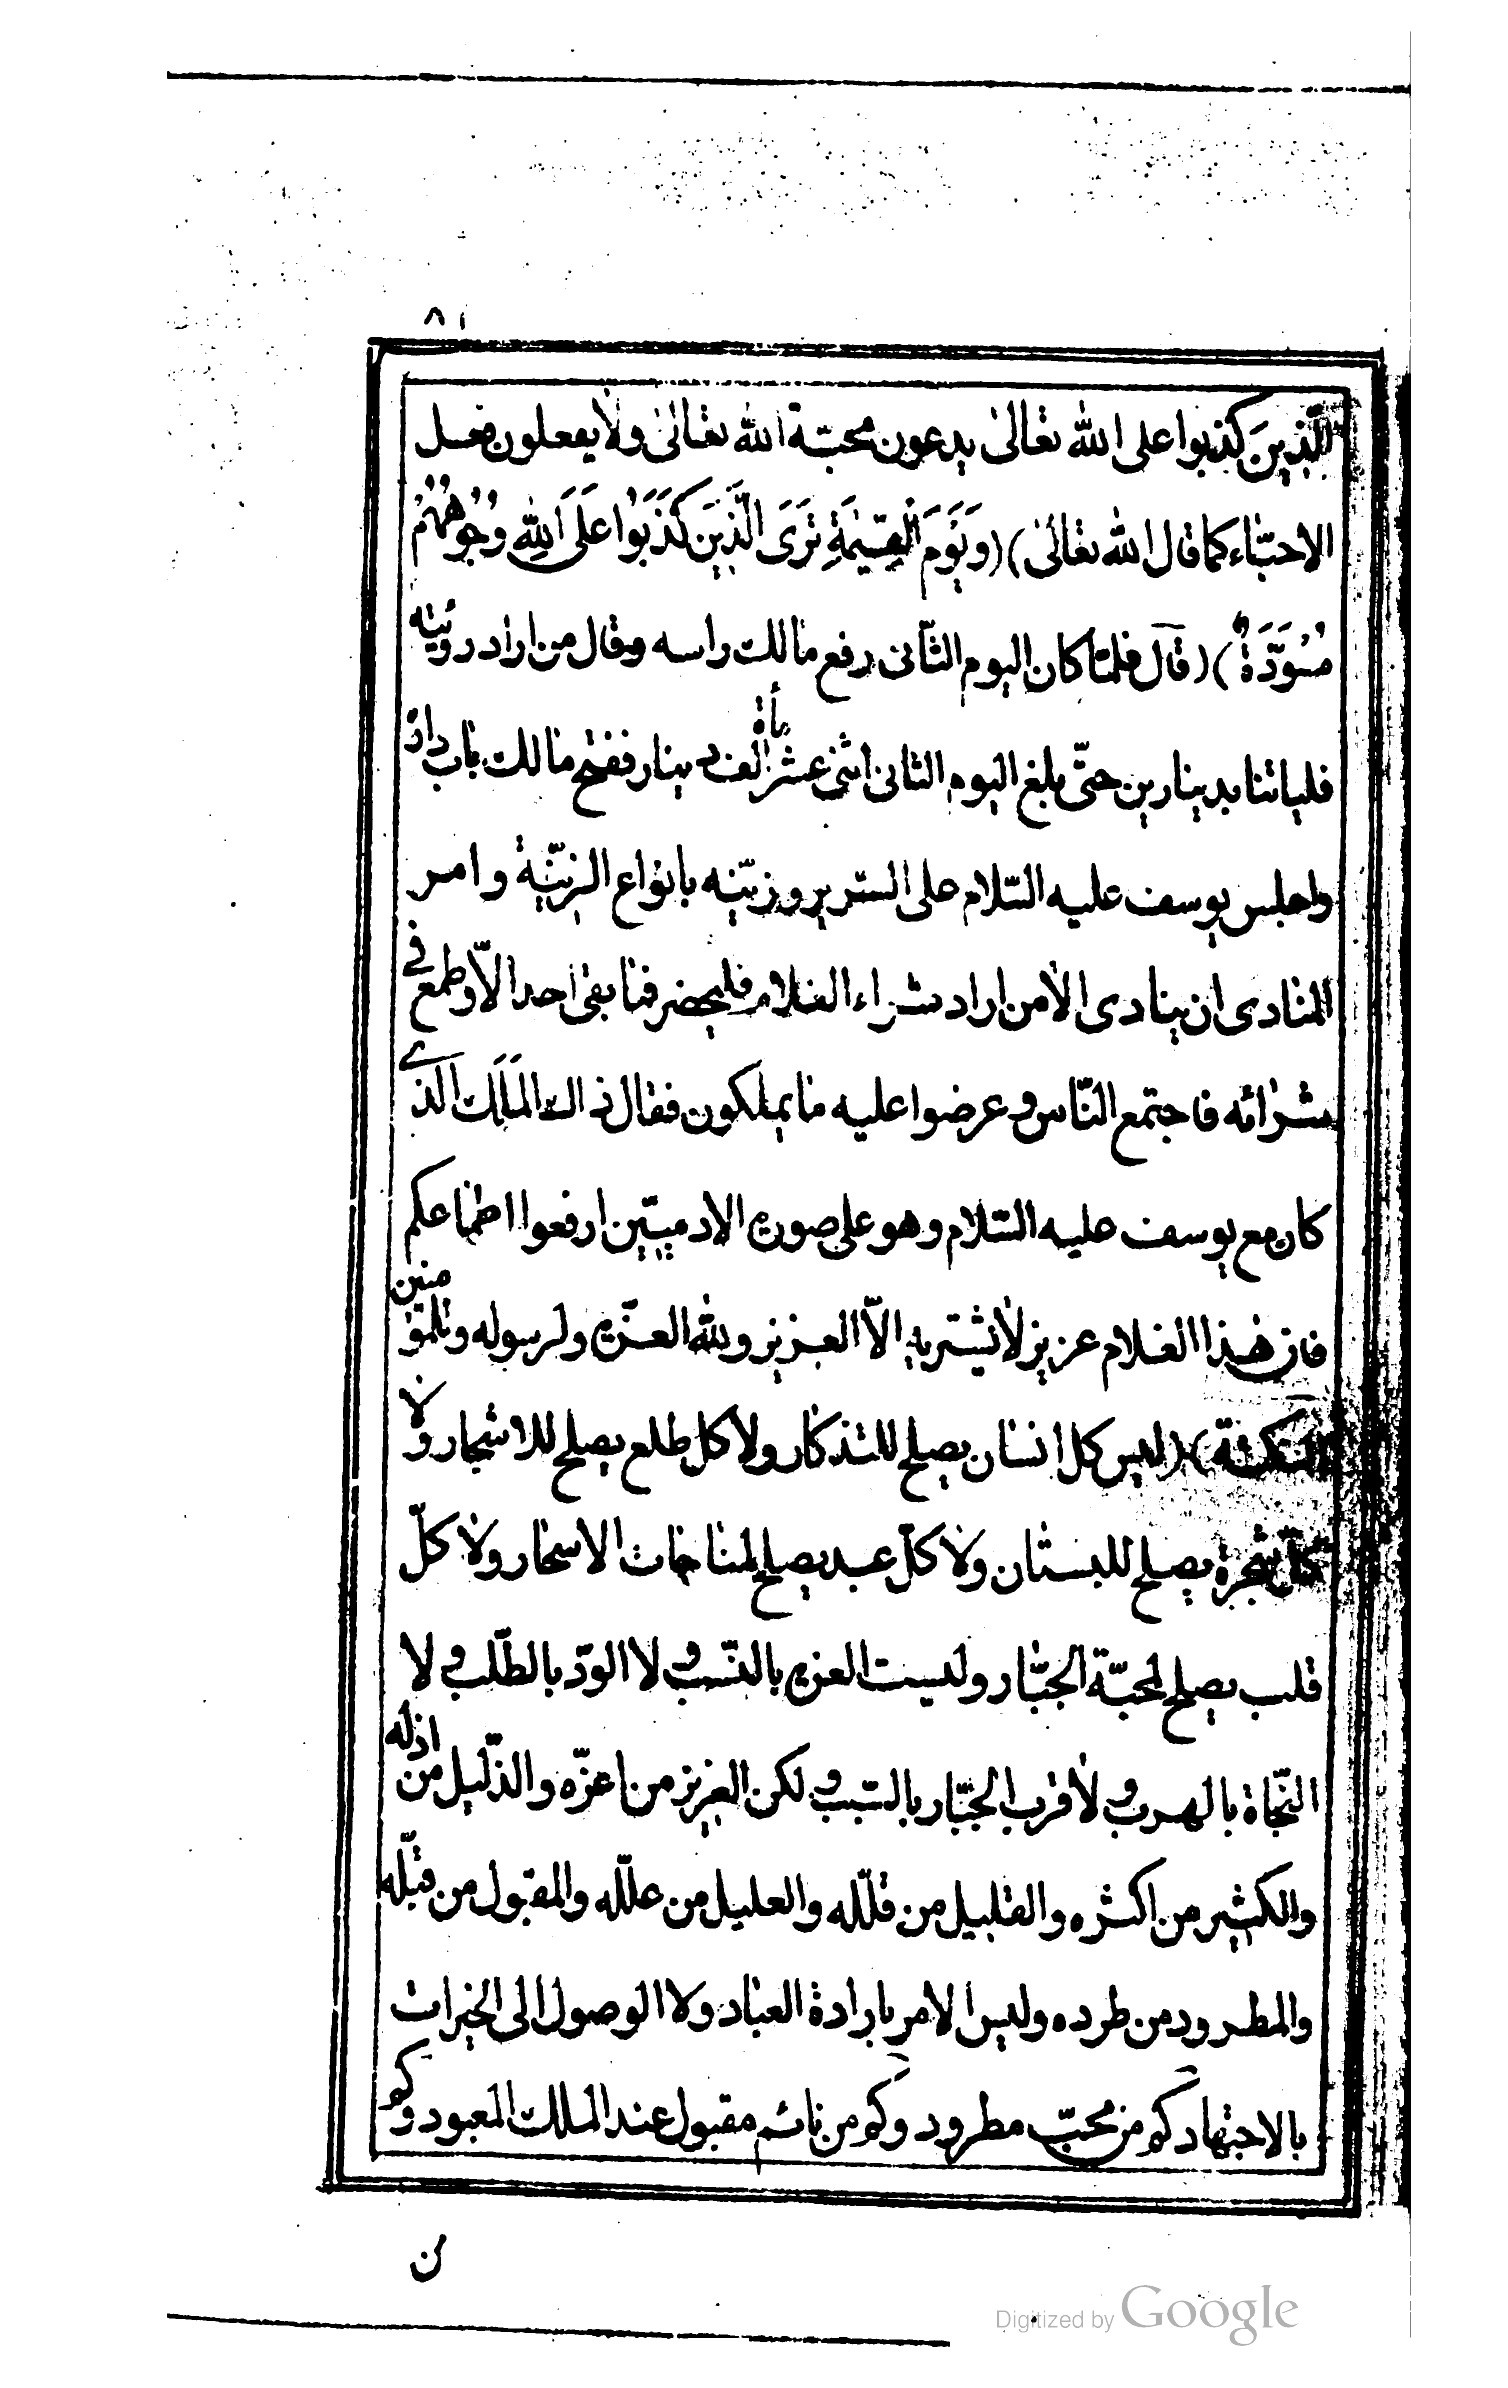 ٨١
الّذينَ كذبوا على الله تعالىٰ يدعون محبّة الله تعالىٰ ولا يفعلون فعل
الاحبّاء كما قال الله تعالىٰ ) (وَيَوْمَ الْقِيٰمَةِ تَرَى الَّذِينَ كَذَبُوا عَلَى اللهِ وُجُوهُهُمْ
مُسْوَدَّةٌ ) ( قال فلمّا كان اليوم الثّانى رفع مالك راسه وقال من اراد رويته
فلياتنا بدينارين حتّى بلغ اليوم الثانى اثنى عشر مأة الف دينار ففتح مالك باب داره
واجلس يوسف عليه السّلام على السّرير وزيّنه بانواع الزينّية وامر
المنادى ان ينادى الا من اراد شراء الغلام فليحضر فما بقى احد الّا وطمع في
شرائه فاجتمع النّاس وعرضوا عليه ما يملكون فقال ذالك المَلَك الّذے
كان مع يوسف عليه السّلام وهو على صورة الادميّين ارفعوا اطماعكم
فان هٰذا الغلام عزيز لا يشتريه الّا العزيز ولله العزّة ولرسوله وللمؤمنين
النكتة ) (ليس كل انسان يصلح للتذكار ولا كل طلع يصلح للاشجار ولا
كلّ شجرة يصلح للبستان ولا كلّ عبد يصلح لمناجات الاسحار ولا كلّ
قلب يصلح لمحبّة الجبّار وليست العزة بالنّسب ولا الودّ بالطّلب ولا
النّجاة بالهرب ولا قرب الجبّار بالسّبب ولكن العزيز من اعزّه والذّليل من اذلّه
والكثير من اكثره والقليل من قلّله والعليل من علّله والمقبول من قبّله
والمطرود من طرده وليس الامر بارادة العباد ولا الوصول الى الخيرات
بالاجتهاد كم من محبّ مطرود وكم من نائم مقبول عند الملك المعبود وكم
Digitized by Google